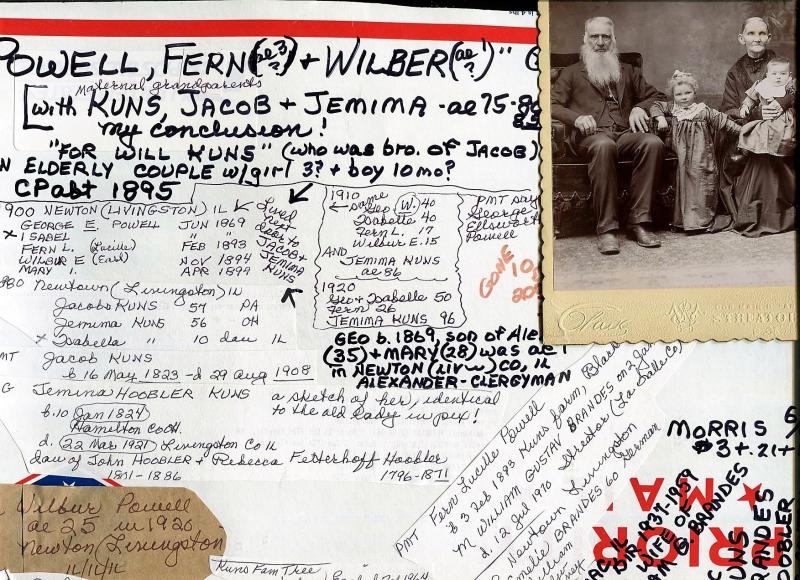 POWELL, FERN (ae 3?) + WILBER (ae 1?)"
Maternal grandparents
[with KUNS, JACOB + JEMIMA - ae 75-80
my conclusion!
"FOR WILL KUNS" (who was bro. of JACOB)
ELDERLY COUPLE w/girl 3? + boy 10 mo?
CP abt 1895
1900 NEWTON (LIVINGSTON) IL
GEORGE E. POWELL JUN 1869
x ISABEL "
FERN L. (Lucille) FEB 1893
WILBUR E (Earl) NOV 1894
MARY I. APR 1899
Lived next door to JACOB + JEMIMA KUNS
1910
same
Geo W. 40
Isabelle 40
Fern L. 17
Wilbur E. 15
AND
JEMIMA KUNS
ae 86
1920
Geo + Isabelle 50
Fern 26
JEMIMA KUNS 96
PMT say
George
Ellsworth
Powell
GONE
1880 Newtown (Livingston) IL
Jacob KUNS 57 PA
Jemima KUNS 56 OH
x Isabella " 10 dau IL
GEO b. 1869, son of
(35) + MARY (28) was ae 1
in NEWTON (LIV) CO, IL
ALEXANDER - CLERGYMAN
Jacob KUNS
b 16 May 1823 - d 29 Aug 1908
Jemina HOOBLER KUNS
a sketch of her, identical
to the old lady in pix!
b. 10 Jan 1824
Hamilton Co OH.
d. 22 Mar 1921 Livingston Co IL
dau of John HOOBLER + Rebecca Fetterhoff Hoobler
1811 - 1886 1796-1871
PMT Fern Lucille Powell
b 3 Feb 1893 Kuns farm,
m WILLIAM GUSTAV BRANDES on 2 Jan
d. 12 Jul 1970 Streator (La Salle Co)
Newtown Livingston
BRANDES 60 German
Wilbur Powell
ae 25 in 1920
Newton (Livingston)
IL/IL/IL
Kuns Fam Tree
MORRIS
$3+.21+
1937-1959
WIFE OF
G. BRANDES
KUNS
HOOBLER
STREATOR